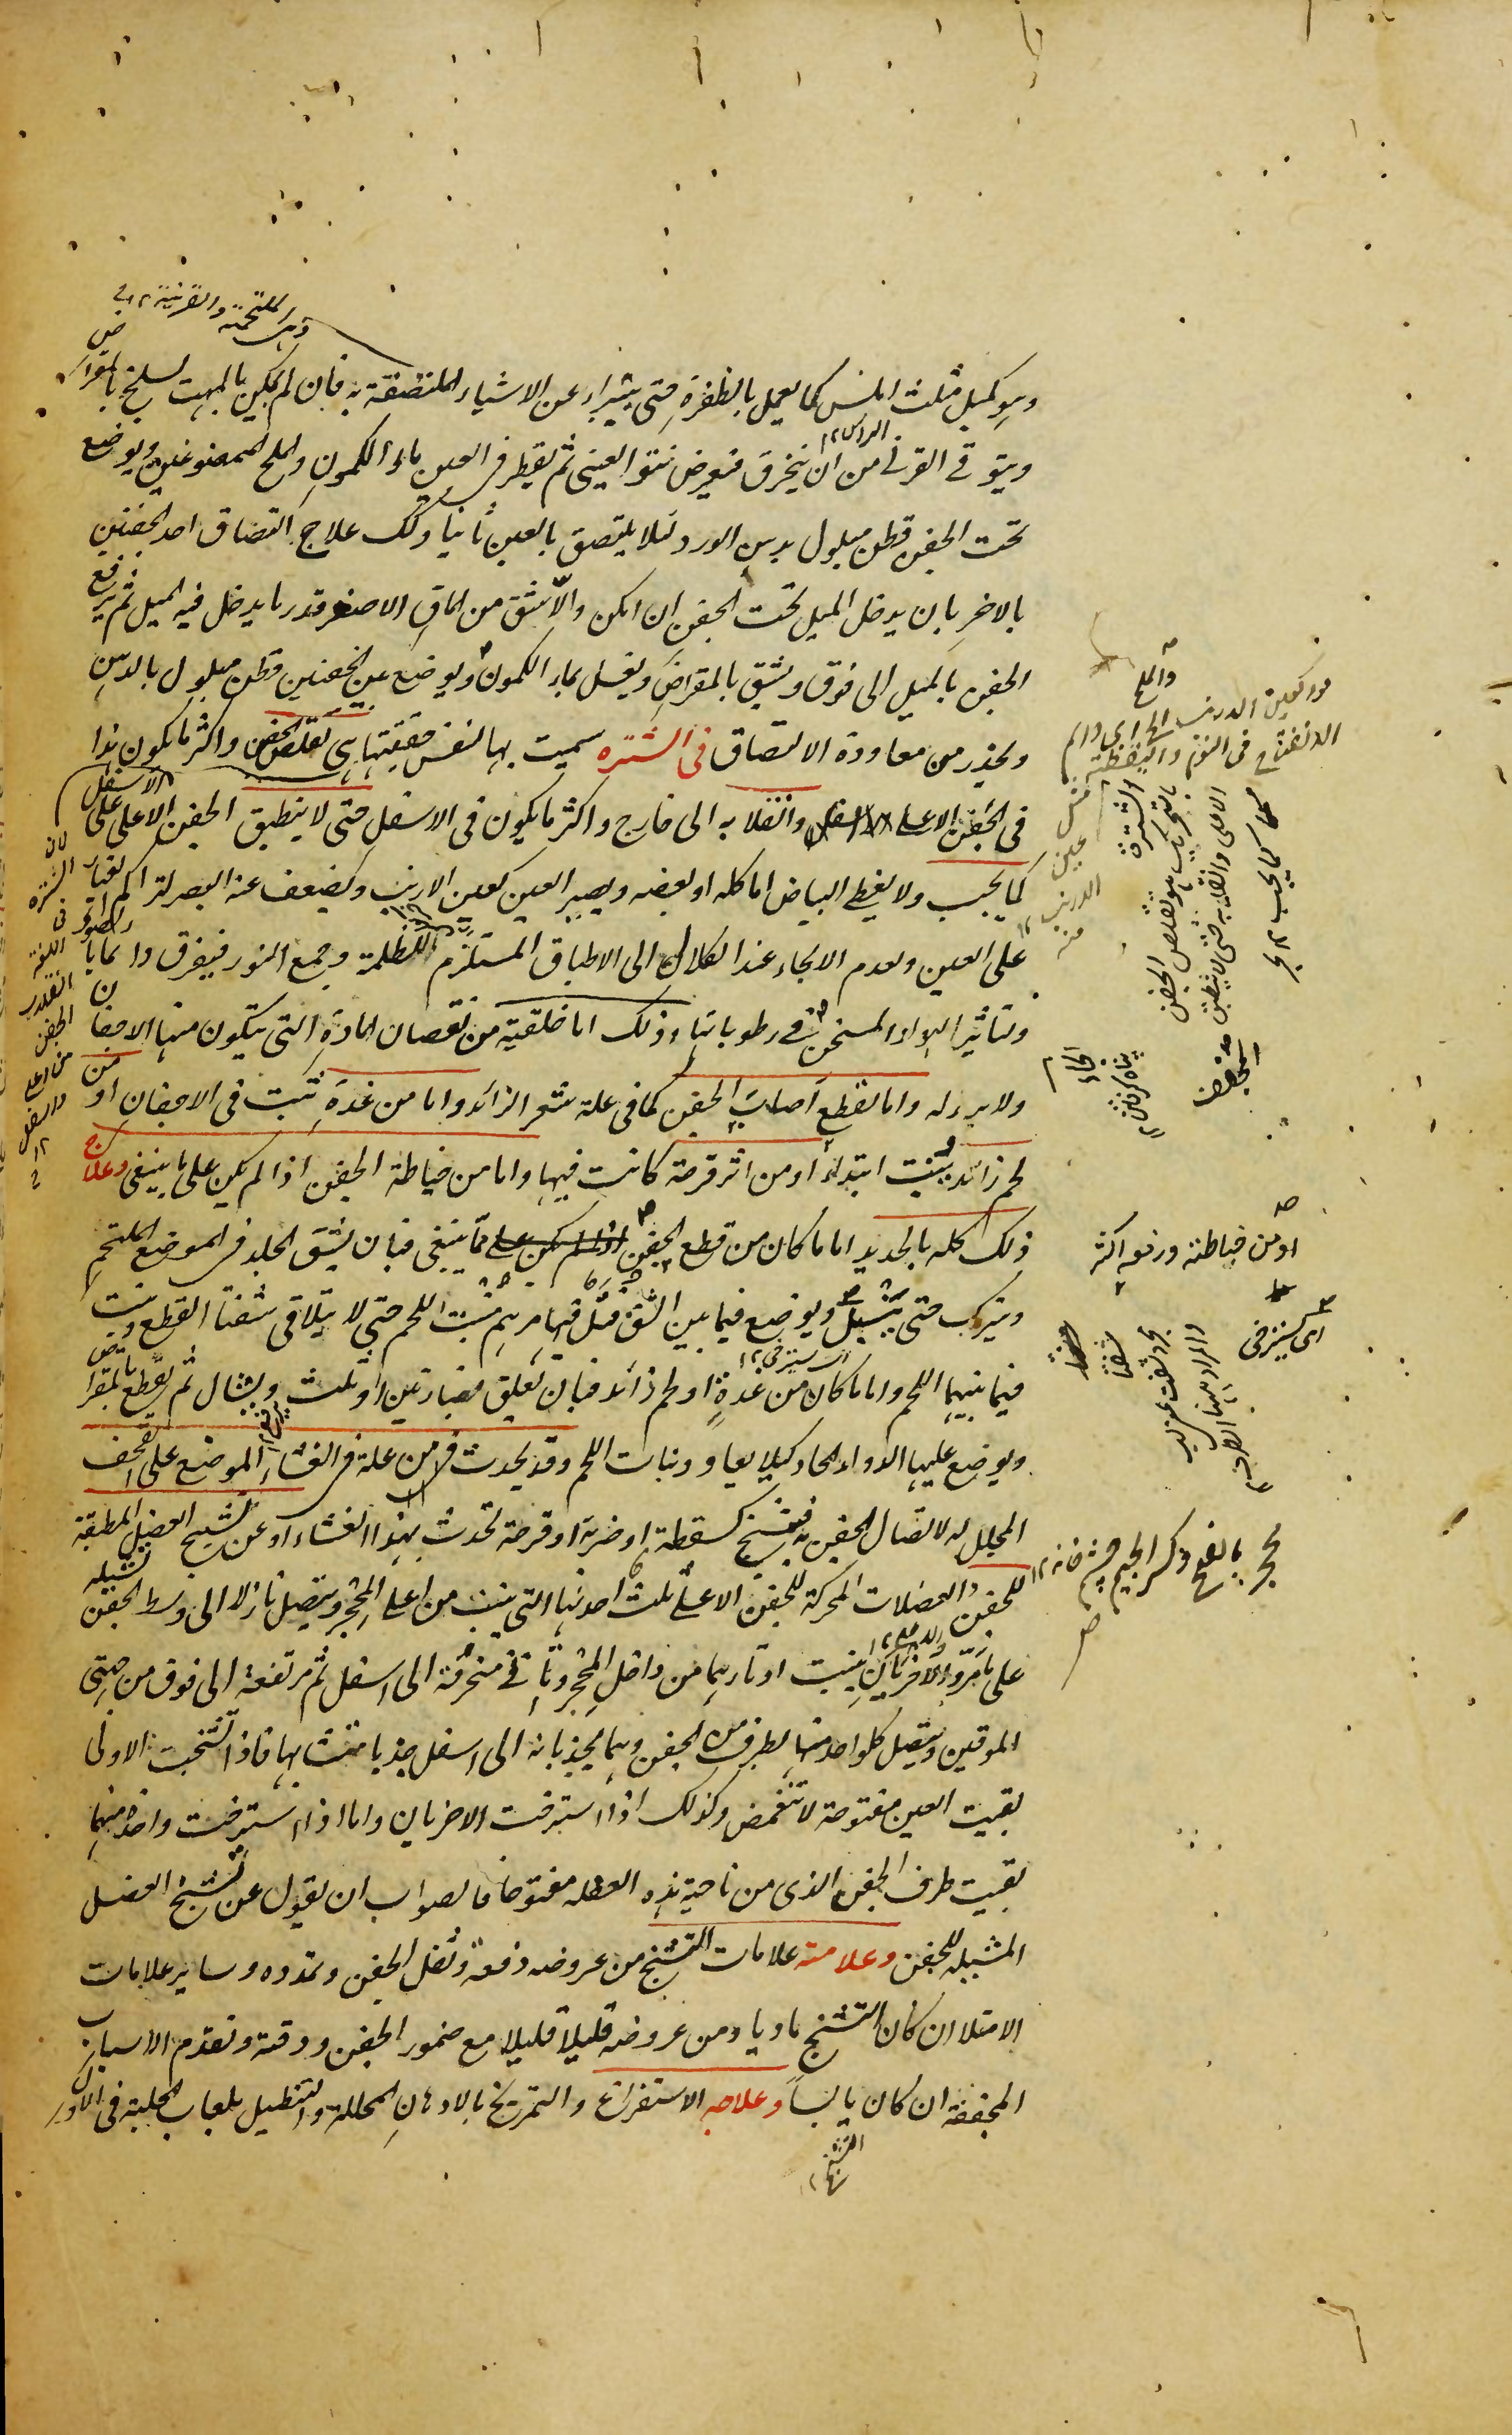 وہی الملتحمة والقرنية ١٢
وہو كميل مثلث املس كما يعمل بالظفرة حتى يتبرأ عن الاشياء الملتصقة به فان لم يمكن بالمهت يسلخ بالمقراض
ويتوقى القرنى من ان ينخرق فيعرض نتو العينى ثم يقطر فى العين ماء الكمون والملح الممضوغين ويوضع
تحت الجفن قطن مبلول بدہن الورد لئلا يلتصق بالعين ثانيا وكك علاج التصاق احد الجفنين
بالاخر بان يدخل الميل تحت الجفن ان امكن والا يشق من الماق الاصغر قدر ما يدخل فيه الميل ثم يرفع
الجفن بالميل الى فوق ويشق بالمقراض ويغسل بماء الكمون ويوضع عن الجفنين قطن مبلول بالدہن
ويحذر من معاودة الالتصاق فى الشترہ سميت بها لنفس حقيقتها ہى تقلص الجفن واكثر ما يكون ہذا
فى الجفن الاعلى وانقلابه الى خارج واكثر ما يكون فى الاسفل حتى لا ينطبق الجفن الاعلى على الاسفل
كما يجب ولا يغطى البياض اما كله او بعضه ويصير العين كعين الارنب ويضعف عنه البصر لتراكم الغبار
على العين وعدم الالجاء عند الكلال الى الاطباق المستلزم للظلمة وجمع النور فيفرق دائما بالضوء
ولتاثير الہواء المسخن فى رطوباتها وذلك اما خلقية من نقصان المادة التى يتكون منها الاجفان
ولا برء له واما لقطع اصاب الجفن كما فى علة شعر الزائد واما من غدة تنبت فى الاجفان او من
لحم زائد ينبت ابتداء او من اثر قرحة كانت فيها واما من خياطة الجفن اذا لم يكن على ما ينبغى وعلاج
ذلك كله بالحديد اما ما كان من قطع الجفن مما ينبغى فبان يشق الجلد فى الموضع الملتحم
ويترك حتى يتشبل ويوضع فيما بين الشق فتل فيها مرہم منبت اللحم حتى لا يتلاقى شفتا القطع وينبت
فيما بينهما اللحم واما ما كان من غدة او لحم زائد فبان يعلق بصنارتين او ثلث ويشال ثم يقطع بالمقراض
ويوضع عليها الدواء الحاد كيلا يعاود ونبات اللحم وقد يحدث من علة فى الغشاء الموضع على القحف
المجلل له لاتصال الجفن به فيتشنج كسقطة او ضربة او قرحة تحدث بهذا الغشاء او عن تشنج العضل المطبقة
للجفن والعضلات المحركة للجفن الاعلى ثلث احدتها التى ينبت من اعلى المحجر ويتصل نازلا الى وسط الجفن يشيله
على ما مر والاخريان ينبت اوتارہما من داخل المحجر وتاتى منحرفة الى اسفل ثم مرتفعة الى فوق من جهتى
الموقين ويتصل كل واحد منها بطرف من الجفن وہما يجذبانه الى اسفل جذبا متشابها فاذا تشنجت الاولى
بقيت العين مفتوحة لا تنغمض وكذلك اذا استرخت الاخريان واما اذا استرخت واحدة منهما
بقيت طرف الجفن الذى من ناحية ہذہ العضله مفتوحا فالصواب ان يقول عن تشنج العضل
المشيله للجفن وعلامته علامات التشنج من عروضه دفعة وثقل الجفن وتمددہ وساير علامات
الامتلا ان كان التشنج ماديا ومن عروضه قليلا قليلا مع ضمور الجفن ورقته وتقدم الاسباب
المجففة ان كان يابسا وعلاجه الاستفراغ والتمريخ بالادہان المحللة والتنطيل بلعاب الحلبة فى الماء
كعين الارنب اى دائم
الانفتاح فى النوم واليقظة
الشترة بالتحريك ہو تقلص الجفن
الاعلى وانقلابه حتى لا ينطبق
كما يجب ١٢ بحر
لان الشترة فى اللغة انقلاب الجفن من اعلى واسفل ١٢
او من خياطته ورفوه اكثر
اى يسترخى
محجر بالفتح وكسر الجيم چشم خانہ ١٢
التشنج ١٢